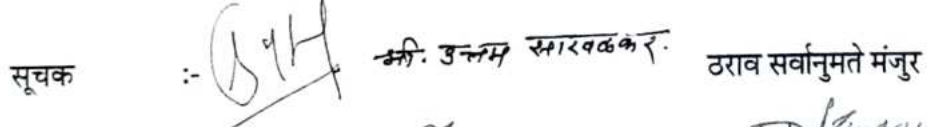 सूचक :- श्री. उत्तम सारवळकर. ठराव सर्वानुमते मंजुर